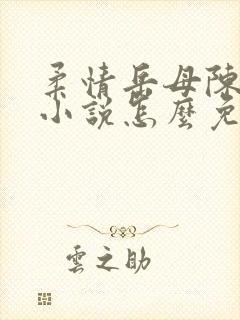 柔情岳母陳
小說怎麼免
雲之助